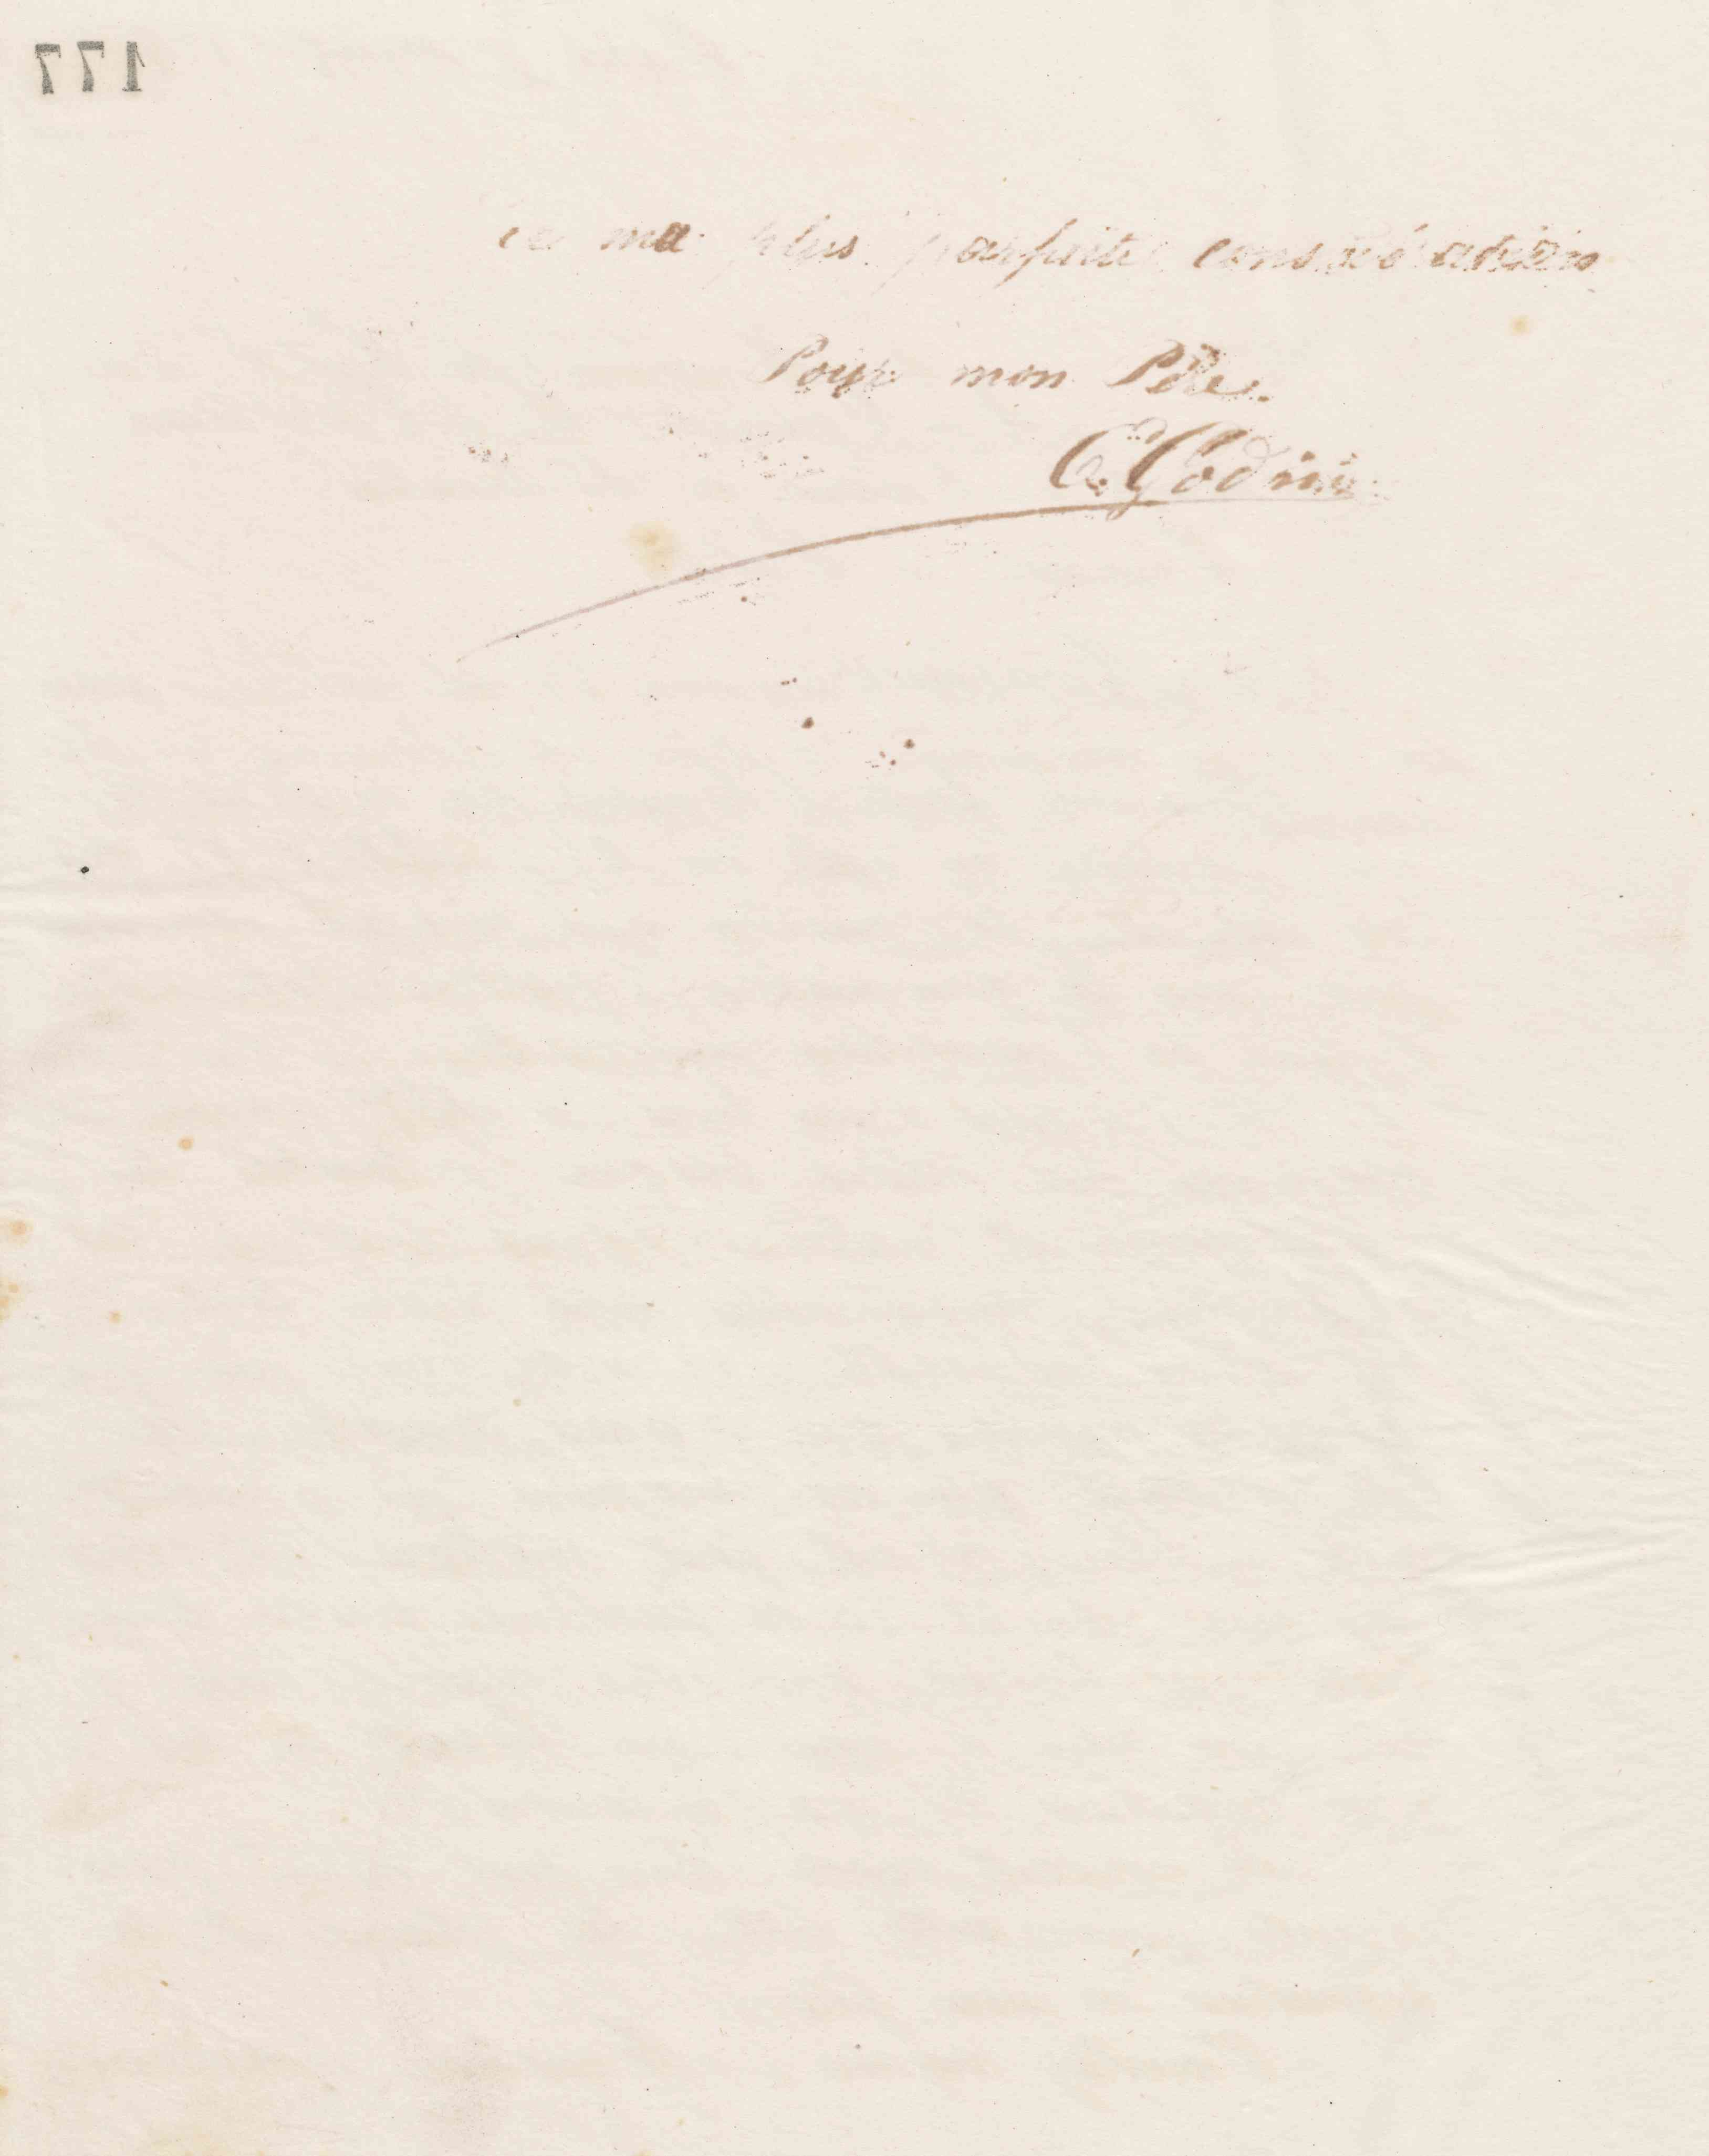 177
de ma plus parfaite considération
Pour mon Père.
E. Godin